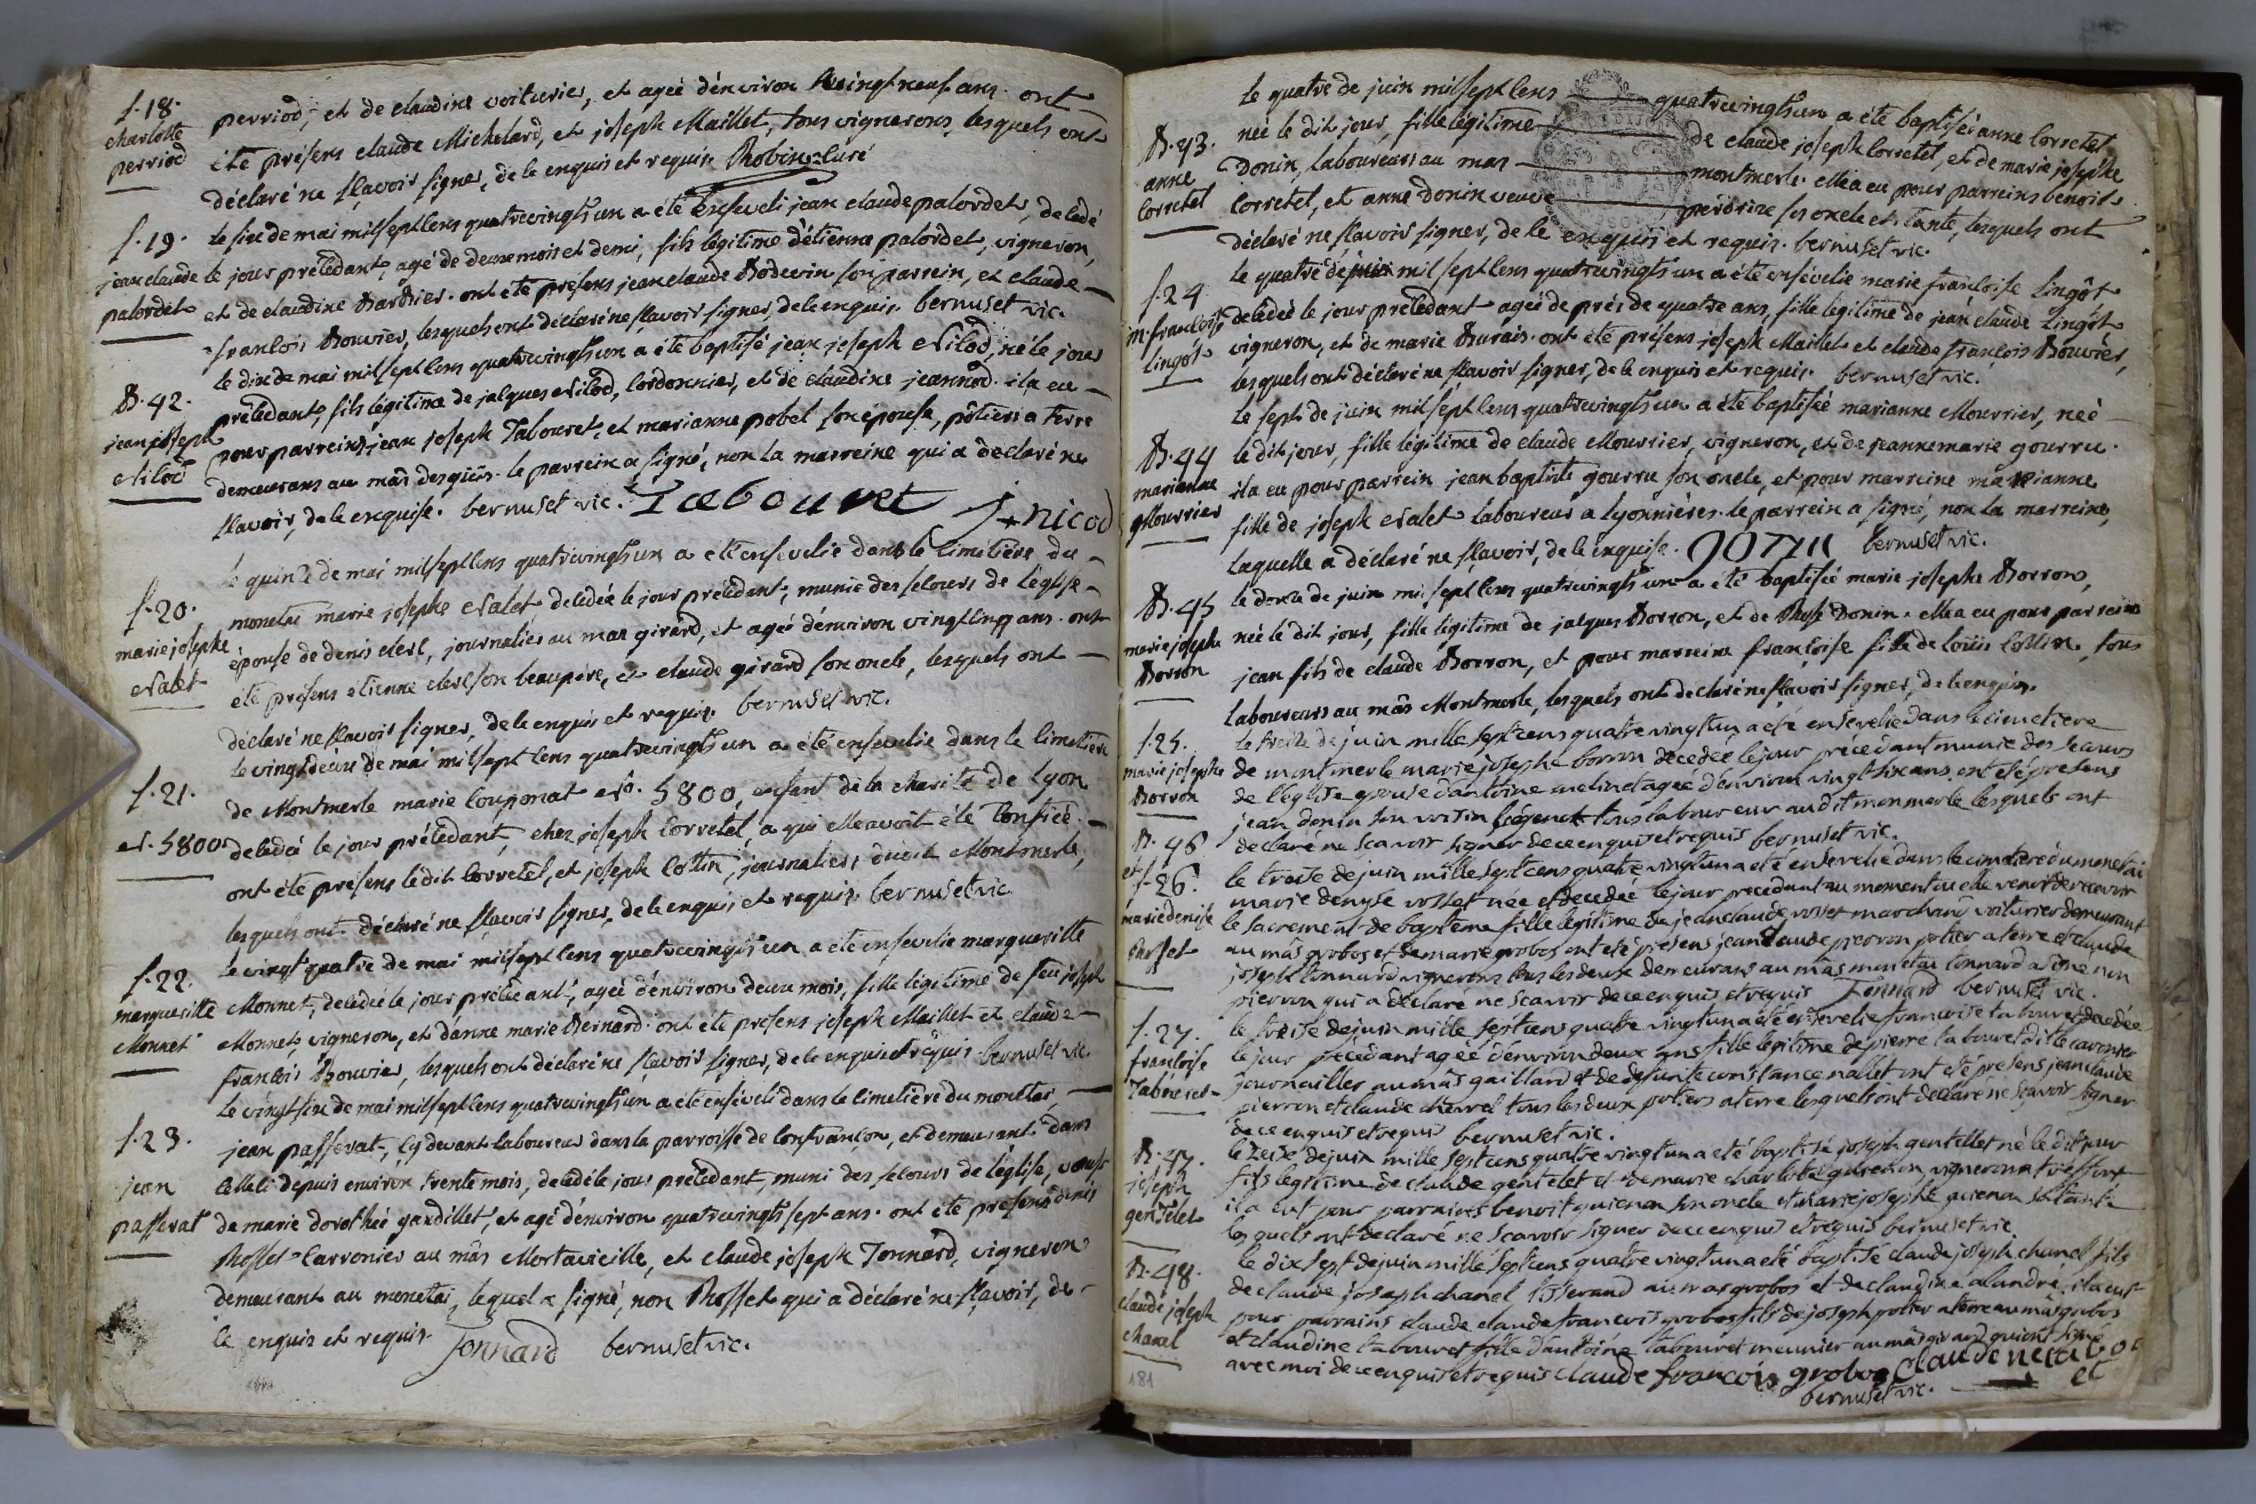 f. 18.
charlotte
perriod
perriod, et de claudine voiturier, et agée d'environ vingt neuf ans. ont
été présens claude Michelard, et joseph Maillet, tous vignerons, lesquels ont
déclaré ne sçavoir signer, de ce enquis et requis. Robin curé
f. 19.
jean claude
palordet
le six de mai mil sept cens quatrevingts un a été enseveli jean claude palordet, decedé
le jour précédant, agé de deux mois et demi, fils légitime d'étienne palordet, vigneron,
et de claudine Bardier. ont été présens jean claude Boderin son parrein, et claude
françois Bouvier, lesquels ont déclaré ne sçavoir signer, de ce enquis. bernuset vic.
B. 42.
jean joseph
Nicod
le dix de mai mil sept cens quatrevingts un a été baptisé jean joseph Nicod, né le jour
précédant, fils légitime de jacques Nicod, cordonnier, et de claudine jeannod. il a eu
pour parreins jean joseph Tabouret, et marianne pobel son épouse, pôtiers a terre
demeurans au mâs desguirs. le parrein a signé, non la marreine qui a declaré ne
sçavoir, de ce enquise. bernuset vic. Tabouret J+nicod
f. 20.
marie josephe
Nalet
le quinze de mai mil sept cens quatrevingts un a été ensevelie dans le cimetière du
monetai marie josephe Nalet, decedée le jour précédant, munie des secours de l'église
épouse de denis clerc, journalier au mas girard, et agée d'environ vingt cinq ans. ont
été présens étienne clerc son beaupère, et claude girard son oncle, lesquels ont
déclaré ne sçavoir signer, de ce enquis et requis. bernuset vic.
f. 21.
N. 5800
le vingt deux de mai mil sept cens quatrevingts un a été ensevelie dans le cimetière
de Montmerle marie couponat No. 5800, enfant de la charité de Lyon
decedée le jour précédant, chez joseph Corretel, a qui elle avoit été confiée.
ont été présens ledit Corretel, et joseph Cottin, journaliers audit Montmerle,
lesquels ont déclaré ne sçavoir signer, de ce enquis et requis. bernuset vic
f. 22.
margueritte
Monnet
le vingt quatre de mai mil sept cens quatrevingts un a été ensevelie margueritte
Monnet, decedée le jour précédant, agée d'environ deux mois, fille légitime de feu joseph
Monnet, vigneron, et d'anne marie Bernard. ont été présens joseph Maillet et claude
françois Bouvier, lesquels ont déclaré ne sçavoir signer, de ce enquis et requis. bernuset vic.
f. 23.
jean
passerat
le vingt six de mai mil sept cens quatrevingts un a été enseveli dans le cimetière du monetai
jean passerat, cy devant laboureur dans la parroisse de confrançon, et demeurant dans
celle ci depuis environ trente mois, decedé le jour précédant, muni des secours de l'église, veuf
de marie dorothée gardillet, et agé d'environ quatrevingts sept ans. ont été présens denis
Rosset carronier au mâs Mortaicieille, et claude joseph Jonnard, vigneron
demeurant au monetai, lequel a signé, non Rosset qui a déclaré ne sçavoir, de
ce enquis et requis. Jonnard bernuset vic.
B. 43.
anne
Corretel
le quatre de juin mil sept cens quatrevingts un a été baptisée anne Corretel
née le dit jour, fille légitime de claude joseph Corretel, et de marie josephe
Donin, laboureurs au mas montmerle. elle a eu pour parreins benoit
Corretel, et anne donin veuve perdrize ses oncle et tante, lesquels ont
déclaré ne sçavoir signer, de ce enquis et requis. bernuset vic.
f. 24
m. françoise
Lingôt
le quatre de juin mil sept cens quatrevingts un a été ensevelie marie françoise Lingôt
decedée le jour précédant agée de près de quatre ans, fille légitime de jean claude Lingôt
vigneron, et de marie Burais. ont été présens joseph Maillet et claude françois Bouvier,
lesquels ont déclaré ne sçavoir signer, de ce enquis et requis. bernuset vic.
B. 44
marianne
Mourrier
le sept de juin mil sept cens quatrevingts un a été baptisée marianne Mourrier, née
le dit jour, fille légitime de claude Mourrier, vigneron, et de jeanne marie gourru.
il a eu pour parrein jean baptiste gourru son oncle, et pour marreine marianne
fille de joseph Nalet laboureur a lyonnières. le parrein a signé, non la marreine,
laquelle a déclaré ne sçavoir, de ce enquise. gorru bernuset vic.
B. 45
marie josephe
Borron
le douze de juin mil sept cens quatrevingts un a été baptisée marie josephe Borron,
née le dit jour, fille légitime de jacques Borron, et de Rose Donin. elle a eu pour parrein
jean fils de claude Borron, et pour marreine françoise fille de loüis Cottin, tous
laboureurs au mâs Montmerle, lesquels ont declaré ne sçavoir signer, de ce enquis.
f. 25.
marie josephe
Borron
le treize de juin mille sept cens quatre vingt un a été ensevelie dans le cimetiere
de montmerle marie josephe borron decedée le jour précédant munie des secours
de l'église epouse d'antoine melinet agée d'environ vingt six ans. ont été présens
jean donin son voisin tous laboureur audit monmerle lesquels ont
declaré ne scavoir signer de ce enquis et requis bernuset vic.
B. 46
et
f. 26.
marie denise
Rosset
le treize de juin mille sept cens quatre vingt un a été ensevelie dans le cimetiere du monetai
marie denyse rosset née et decedée le jour precedant au moment ou elle venoit de recevoir
le sacrement de bapteme fille legitime de jean claude rosset marchand voiturier demeurant
au mâs grobos et de marie grobos ont été présens jean claude pierron potier a terre et claude
joseph Connard vignerons tous les deux demeurans au mâs monetai Connard a signé non
pierron qui a declaré ne scavoir de ce enquis et requis Jonnard bernuset vic.
f. 27.
françoise
Tabouret
le treise de juin mille sept cens quatre vingt un a été ensevelie françoise tabouret decedée
le jour precedant agée d'environ deux ans fille legitime de pierre tabouret dit le caronier
journailler au mâs gaillard et de defunte constance nallet ont été présens jean claude
pierron et claude charvel tous les deux potiers a terre lesquels ont declaré ne scavoir signer
de ce enquis et requis bernuset vic.
B. 47.
joseph
gentelet
le seize de juin mille sept cens quatre vingt un a été baptisé joseph gentellet né le dit jour
fils legitime de claude gentelet et de marie charlotte guienon, vigneron a treffort
il a eut pour parrains benoit guienon son oncle et marie josephe guienon sa tante
lesquels ont declaré ne scavoir signer de ce enquis et requis bernuset vic.
B. 48.
claude joseph
chanel
le dix sept de juin mille sept cens quatre vingt un a été baptisé claude joseph chanel fils
de claude joseph chanel tisserand au mas grobos et de claudine alandré, il a eut
pour parrains claude claude francois grobos fils de joseph potier a terre au mâs grobos
et claudine tabouret fille d'antoine tabouret meunier au mâs girard qui ont signé
avec moi de ce enquis et requis claude françois grobos
bernuset vic.
181